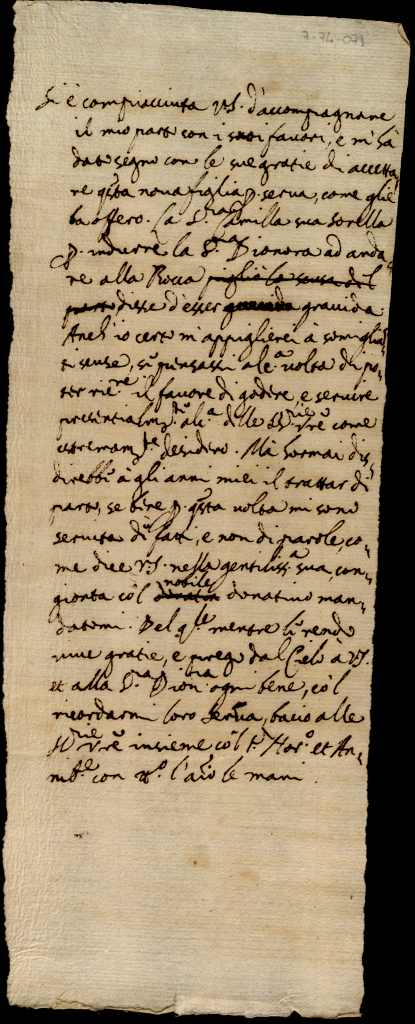 7-74-071
Si è compiacciuta V.S. d'accompagnare
il mio parto con i suoi favori, e m'hà
dato segno con le sue gratie di accetta-
re q.sta nova figlia p. serva, come glie
la offero. La S.ra Camilla sua sorella
p. indurre la S.ra Dionora ad anda-
re alla Rocca piglio la scusa del
parto disse d'esser gravida gravida
Anch'io certo m'appiglierei à simiglian-
ti scuse, se pensassi alc.a volta di po-
ter ric.re il favore di godere, e servire
presentialm.te alc.a delle SS.rie V.re come
estremam.te desidero. Mà hormai dis-
direbbe à gli anni miei il trattar di
parto, se bene p. q.sta volta mi sono
servita di fatti, e non di parole, co-
me dice V.S. nella gentiliss.a sua, con-
gionta co'l nobile donativo man-
datomi. Del q.le mentre le rendo
vive gratie, e prego dal Cielo a V.S.
et alla S.ra Dion.ra ogni bene, co'l
ricordarmi loro serva, bacio alle
SS.rie V.re insieme co'l S.r Hor.o et An-
nib.e con l'a le mani.